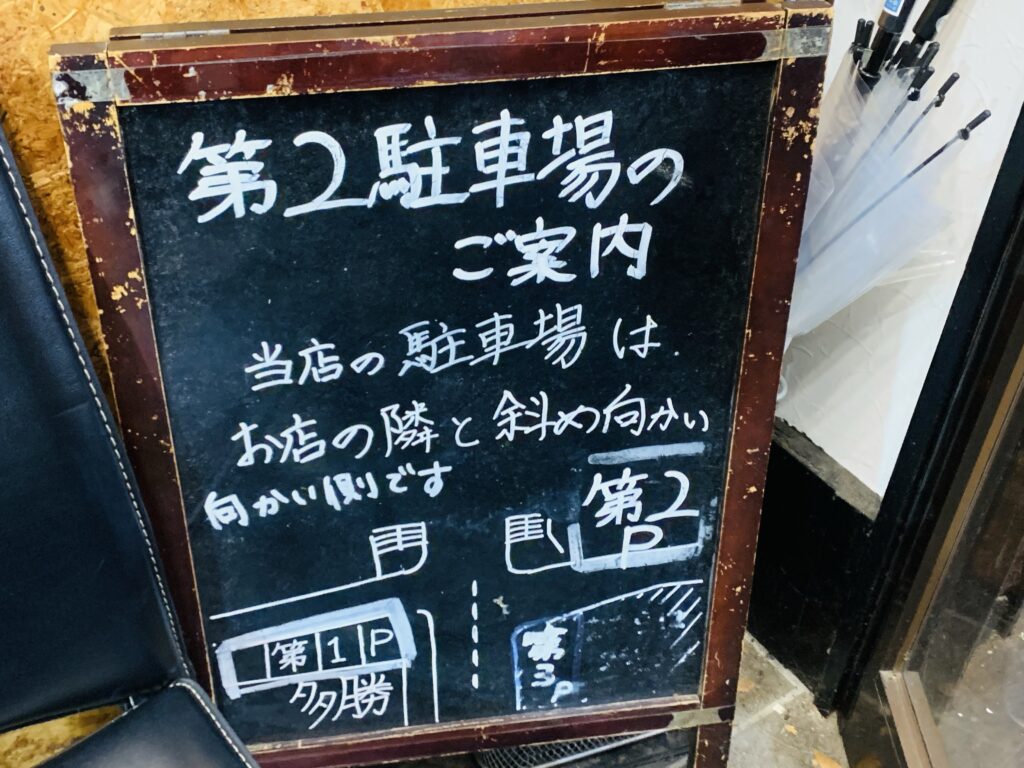 第2駐車場の
ご案内
当店の駐車場は
お店の隣と斜め向かい
向かい側です
第2
P
第1P
多勝
第3P